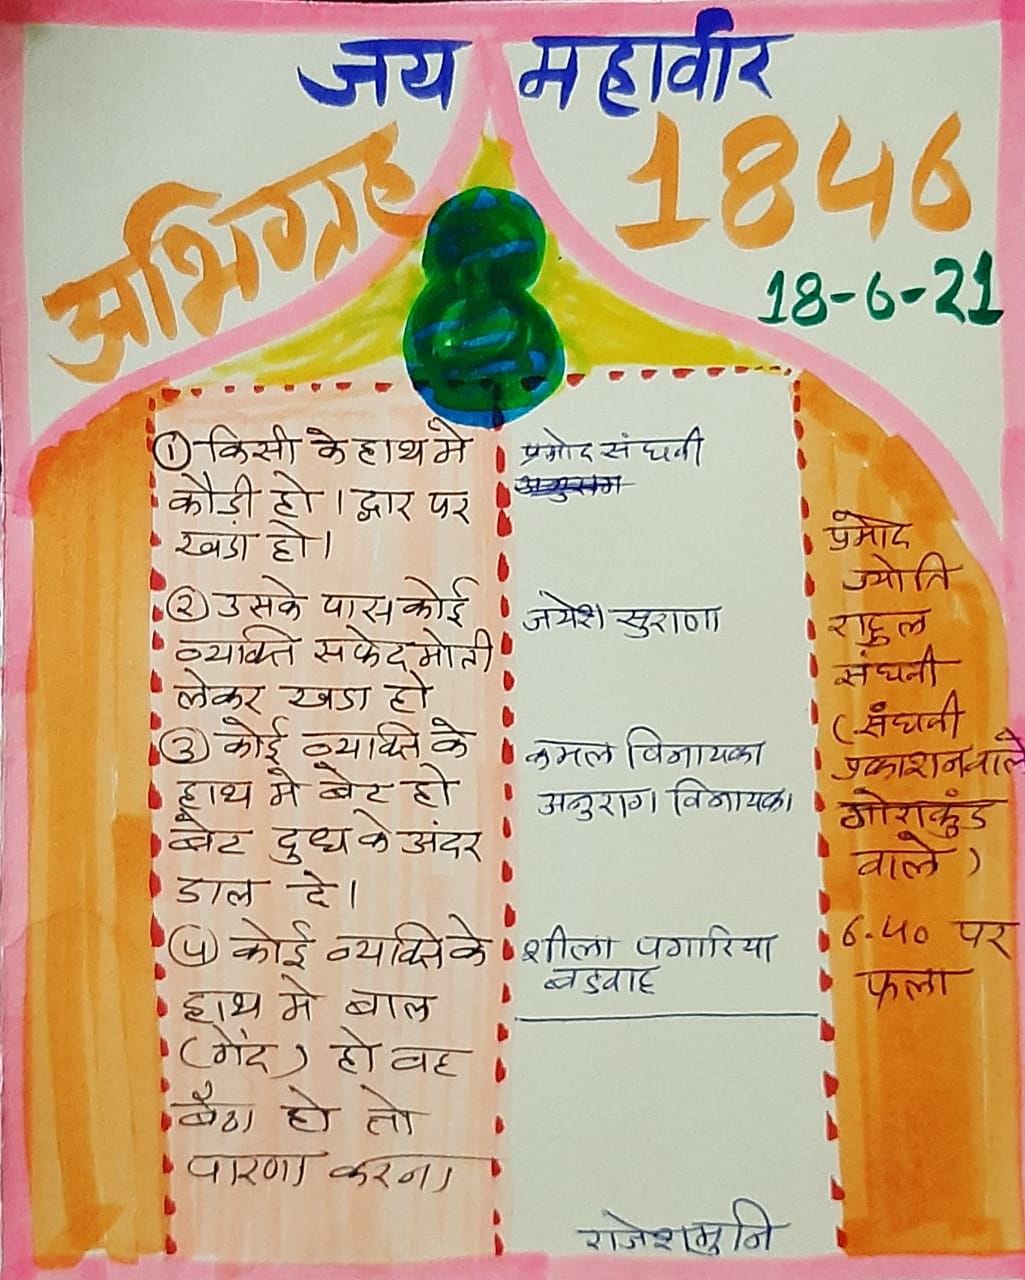 जय महावीर
अभिग्रह
1846
18-6-21
① किसी के हाथ मे
कौडी हो । द्वार पर
खडा हो ।
② उसके पास कोई
व्यक्ति सफेद मोती
लेकर खडा हो
③ कोई व्यक्ति के
हाथ मे बेट हो
बेट दुध के अंदर
डाल दे ।
④ कोई व्यक्ति के
हाथ मे बाल
(गेंद) हो वह
बैठा हो तो
पारणा करना
प्रमोद संघवी
जयेश सुराणा
कमल विनायका
अनुराग विनायका
शीला पगारिया
बडवाह
राजेशमुनि
प्रमोद
ज्योति
राहुल
संघवी
(संघवी
प्रकाशन वाले
गोराकुंड
वाले)
6.40 पर
फला